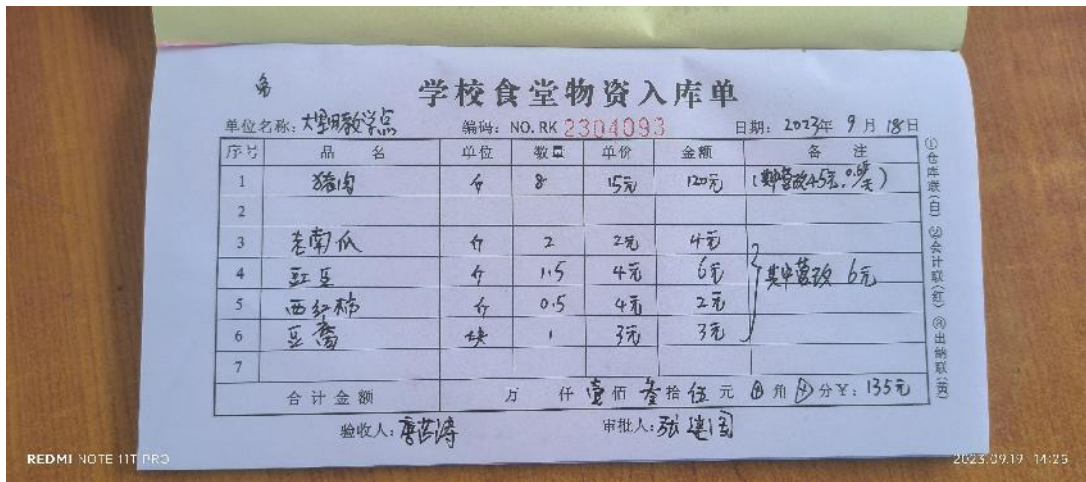 学校食堂物资入库单
单位名称：大里田教学点 编码：NO.RK 2304093 日期：2023年 9月 18日
序号 品名 单位 数量 单价 金额 备注
1 猪肉 斤 8 15元 120元 (其中营改45元,
2
3 老南瓜 斤 2 2元 4元
4 豇豆 斤 1.5 4元 6元 其中营改 6元
5 西红柿 斤 0.5 4元 2元
6 豆腐 块 1 3元 3元
7
合计金额 万 仟 壹佰 叁拾 伍元 角 分 ¥：135元
验收人： 审批人：张建国
①仓库联(白) ②会计联(红) ③出纳联(黄)
REDMI NOTE 11T PRO
2023.09.19 14:25